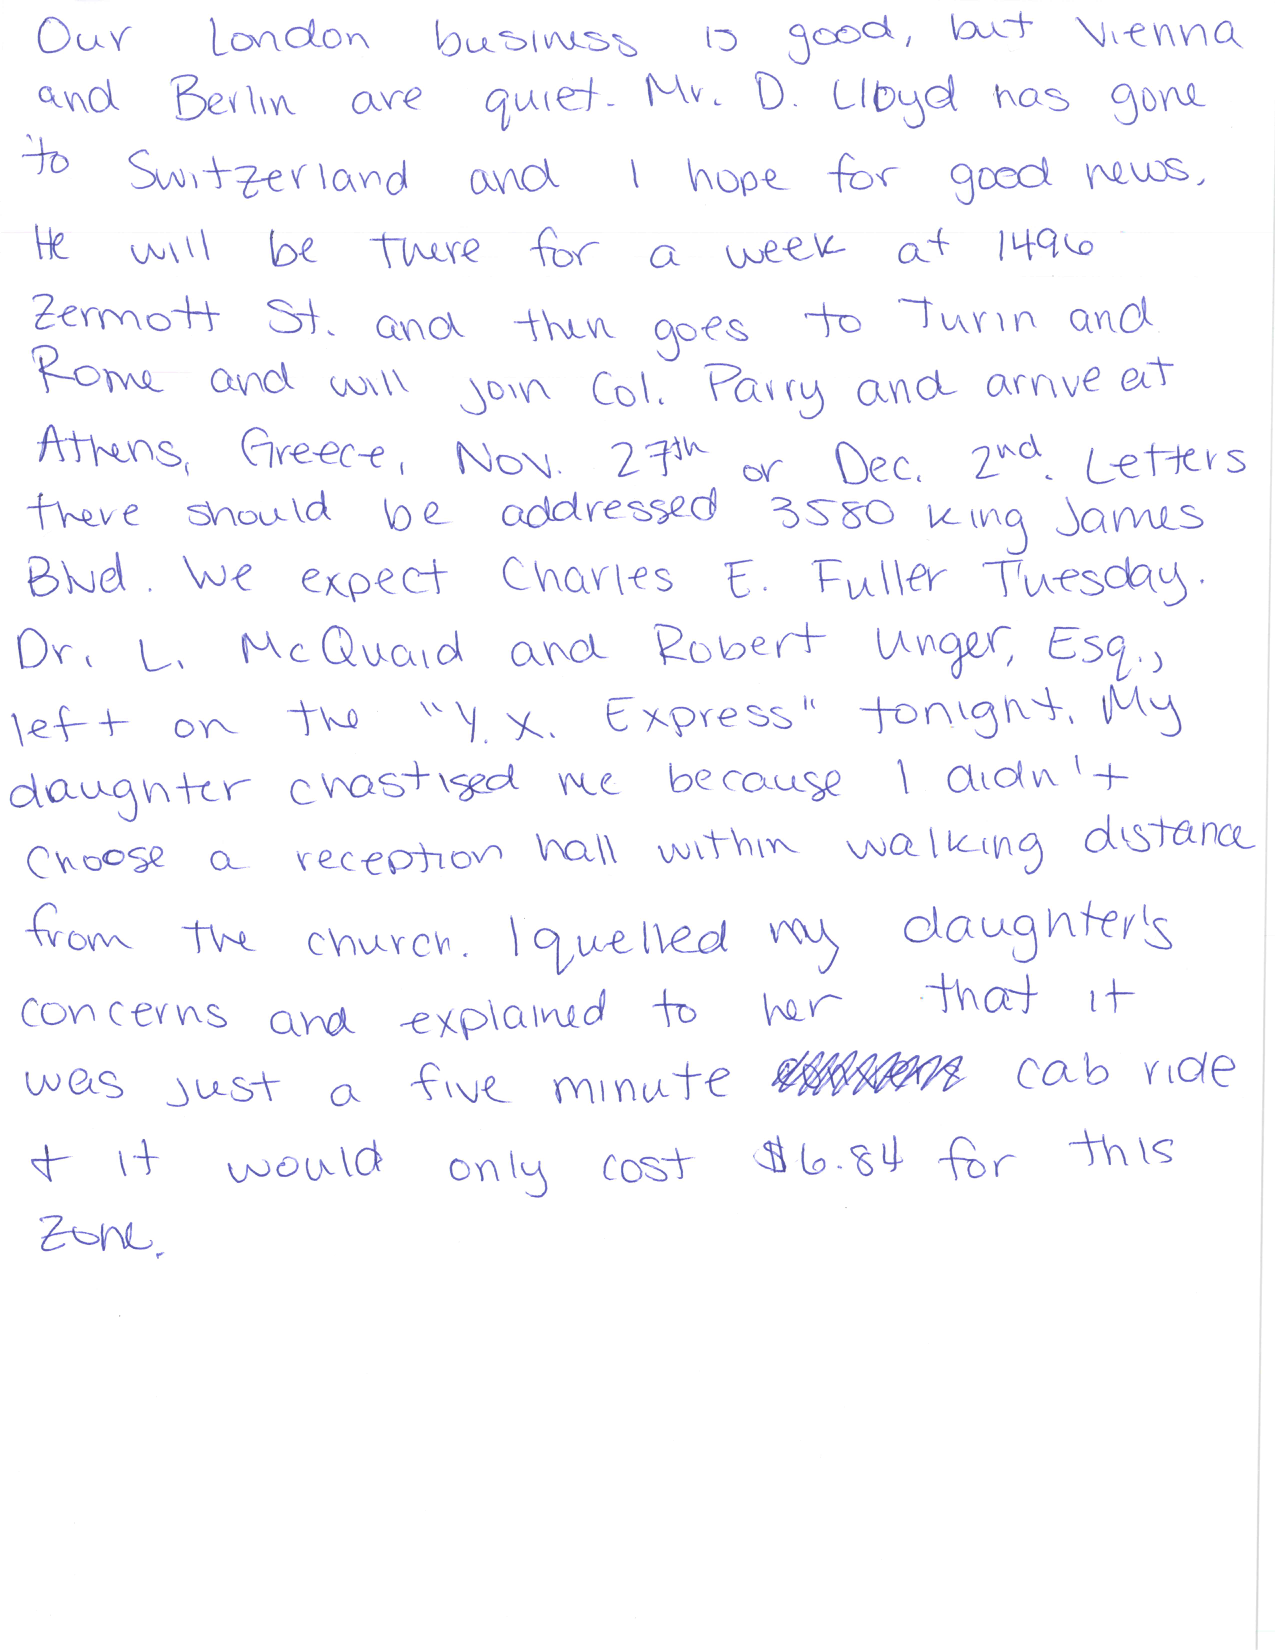 Our London business is good, but Vienna
and Berlin are quiet. Mr. D. Lloyd has gone
to Switzerland and I hope for good news.
He will be there for a week at 1496
Zermott St. and then goes to Turin and
Rome and will join Col. Parry and arrive at
Athens, Greece, Nov. 27th or Dec. 2nd. Letters
there should be addressed 3580 King James
Blvd. We expect Charles E. Fuller Tuesday.
Dr. L. McQuaid and Robert Unger, Esq.,
left on the "Y.X. Express" tonight. My
daughter chastised me because I didn't
choose a reception hall within walking distance
from the church. I quelled my daughter's
concerns and explained to her that it
was just a five minute cab ride
+ it would only cost $6.84 for this
zone.